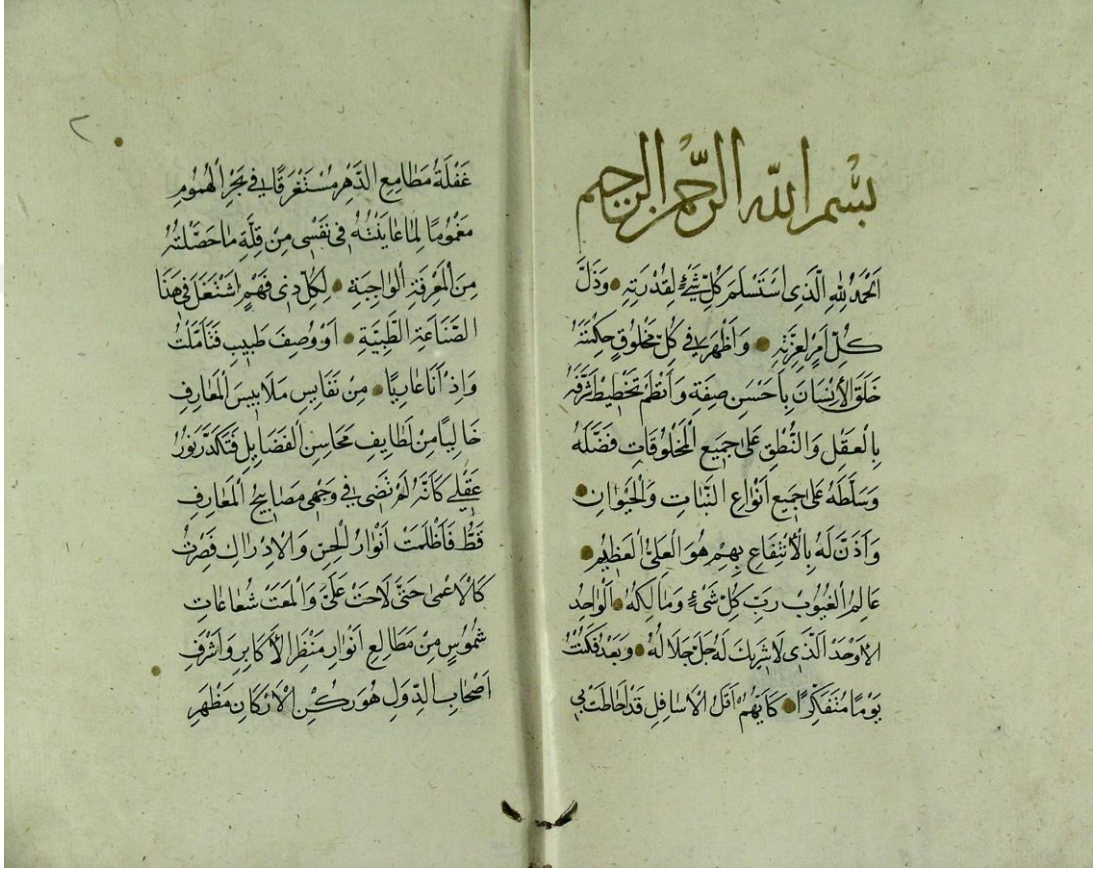 بسم الله الرحمن الرحيم
اَلْحَمْدُ لِلّٰهِ الَّذِى اسْتَسْلَمَ كُلُّ شَىْءٍ لِقُدْرَتِهِ وَذَلَّ
كُلُّ اَمْرٍ لِعِزَّتِهِ وَاَظْهَرَ فِى كُلِّ مَخْلُوقٍ حِكْمَتَهُ
خَلَقَ الْاِنْسَانَ بِاَحْسَنِ صِفَةٍ وَاَنْظَمِ تَخْطِيطٍ شَرَّفَهُ
بِالْعَقْلِ وَالنُّطْقِ عَلٰى جَمِيعِ الْمَخْلُوقَاتِ فَضَّلَهُ
وَسَلَّطَهُ عَلٰى جَمِيعِ اَنْوَاعِ النَّبَاتِ وَالْحَيْوَانِ
وَاَذِنَ لَهُ بِالْاِنْتِفَاعِ بِهِمْ هُوَ الْعَلِىُّ الْعَظِيمُ
عَالِمُ الْغُيُوبِ رَبُّ كُلِّ شَىْءٍ وَمَالِكُهُ اَلْوَاحِدُ
الْاَوْحَدُ الَّذِى لَا شَرِيكَ لَهُ جَلَّ جَلَالُهُ وَبَعْدُ فَكُنْتُ
يَوْمًا مُتَفَكِّرًا كَاَيِّهِمْ اَقَلُّ الْاَسَافِلِ قَدْ اَحَاطَتْ بِى
٢
غَفْلَةُ مَطَامِعِ الدَّهْرِ مُسْتَغْرَقًا فِى بَحْرِ الْهُمُومِ
مَغْمُومًا لِمَا عَايَنْتُهُ فِى نَفْسِى مِنْ قِلَّةِ مَا حَصَّلْتُهُ
مِنَ الْمَعْرِفَةِ الْوَاجِبَةِ لِكُلِّ ذِى فَهْمٍ اشْتَغَلَ فِى هٰذَا
الصَّنَاعَةِ الطِّبِّيَّةِ اَوْ وُصِفَ طَبِيبٍ فَتَأَمَّلْتُ
وَاِذْ اَنَا عَارِيًا مِنْ نَفَايِسِ مَلَابِيسِ الْمَعَارِفِ
خَالِيًا مِنْ لَطَايِفِ مَحَاسِنِ الْفَضَايِلِ فَتَكَدَّرَ نُورُ
عَقْلِى كَاَنَّهُ لَمْ تَضِى فِى وَجْهِى مَصَابِيحُ الْمَعَارِفِ
قَطُّ فَاَظْلَمَتْ اَنْوَارُ الْحِسِّ وَالْاِدْرَاكِ فَصِرْتُ
كَالْاَعْمٰى حَتّٰى لَاحَتْ عَلَىَّ وَالْمَعَتْ شُعَاعَاتِ
شُمُوسٍ مِنْ مَطَالِعِ اَنْوَارِ مَنْظَرِ الْاَكَابِرِ وَاَشْرَفِ
اَصْحَابِ الدِّوَلِ هُوَ رُكْنِ الْاَرْكَانِ مَظْهَرِ